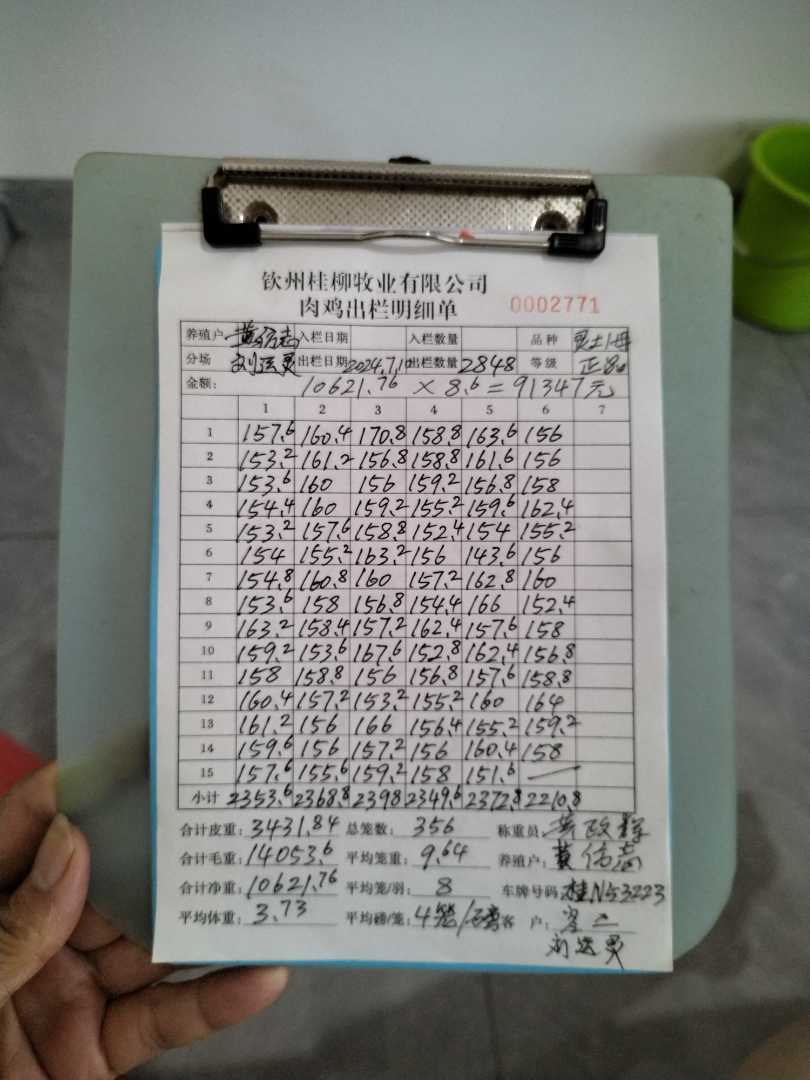 钦州桂柳牧业有限公司
肉鸡出栏明细单 0002771
养殖户 黄伟志 入栏日期 入栏数量 品种 灵土1母
分场 刘运灵 出栏日期 2024.7.10 出栏数量 2848 等级 正品
金额: 10621.76 × 8.6 = 91347元
1 2 3 4 5 6 7
1 157.6 160.4 170.8 158.8 163.6 156
2 153.2 161.2 156.8 158.8 161.6 156
3 153.6 160 156 159.2 156.8 158
4 154.4 160 159.2 155.2 159.6 162.4
5 153.2 157.6 158.8 152.4 154 155.2
6 154 155.2 163.2 156 143.6 156
7 154.8 160.8 160 157.2 162.8 160
8 153.6 158 156.8 154.4 166 152.4
9 163.2 158.4 157.2 162.4 157.6 158
10 159.2 153.6 167.6 152.8 162.4 156.8
11 158 158.8 156 156.8 157.6 158.8
12 160.4 157.2 153.2 155.2 160 164
13 161.2 156 166 156.4 155.2 159.2
14 159.6 156 157.2 156 160.4 158
15 157.6 155.6 159.2 158 151.6 —
小计 2353.6 2368.8 2398 2349.6 2372.8 2210.8
合计皮重: 3431.84 总笼数: 356 称重员
合计毛重: 14053.6 平均笼重: 9.64 养殖户: 黄伟志
合计净重: 10621.76 平均笼/羽: 8 车牌号码 桂N53223
平均体重: 3.73 平均磅/笼: 4笼/磅 客户:
刘运灵